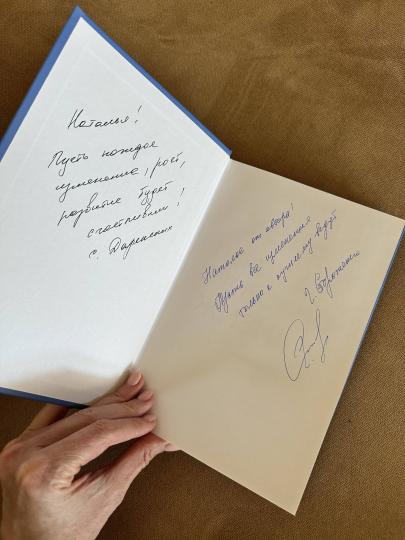 Наталья!
Пусть каждое
изменение, рост,
развитие будет
счастливым!
Наталье от автора!
Пусть все изменения
только к лучшему ведут